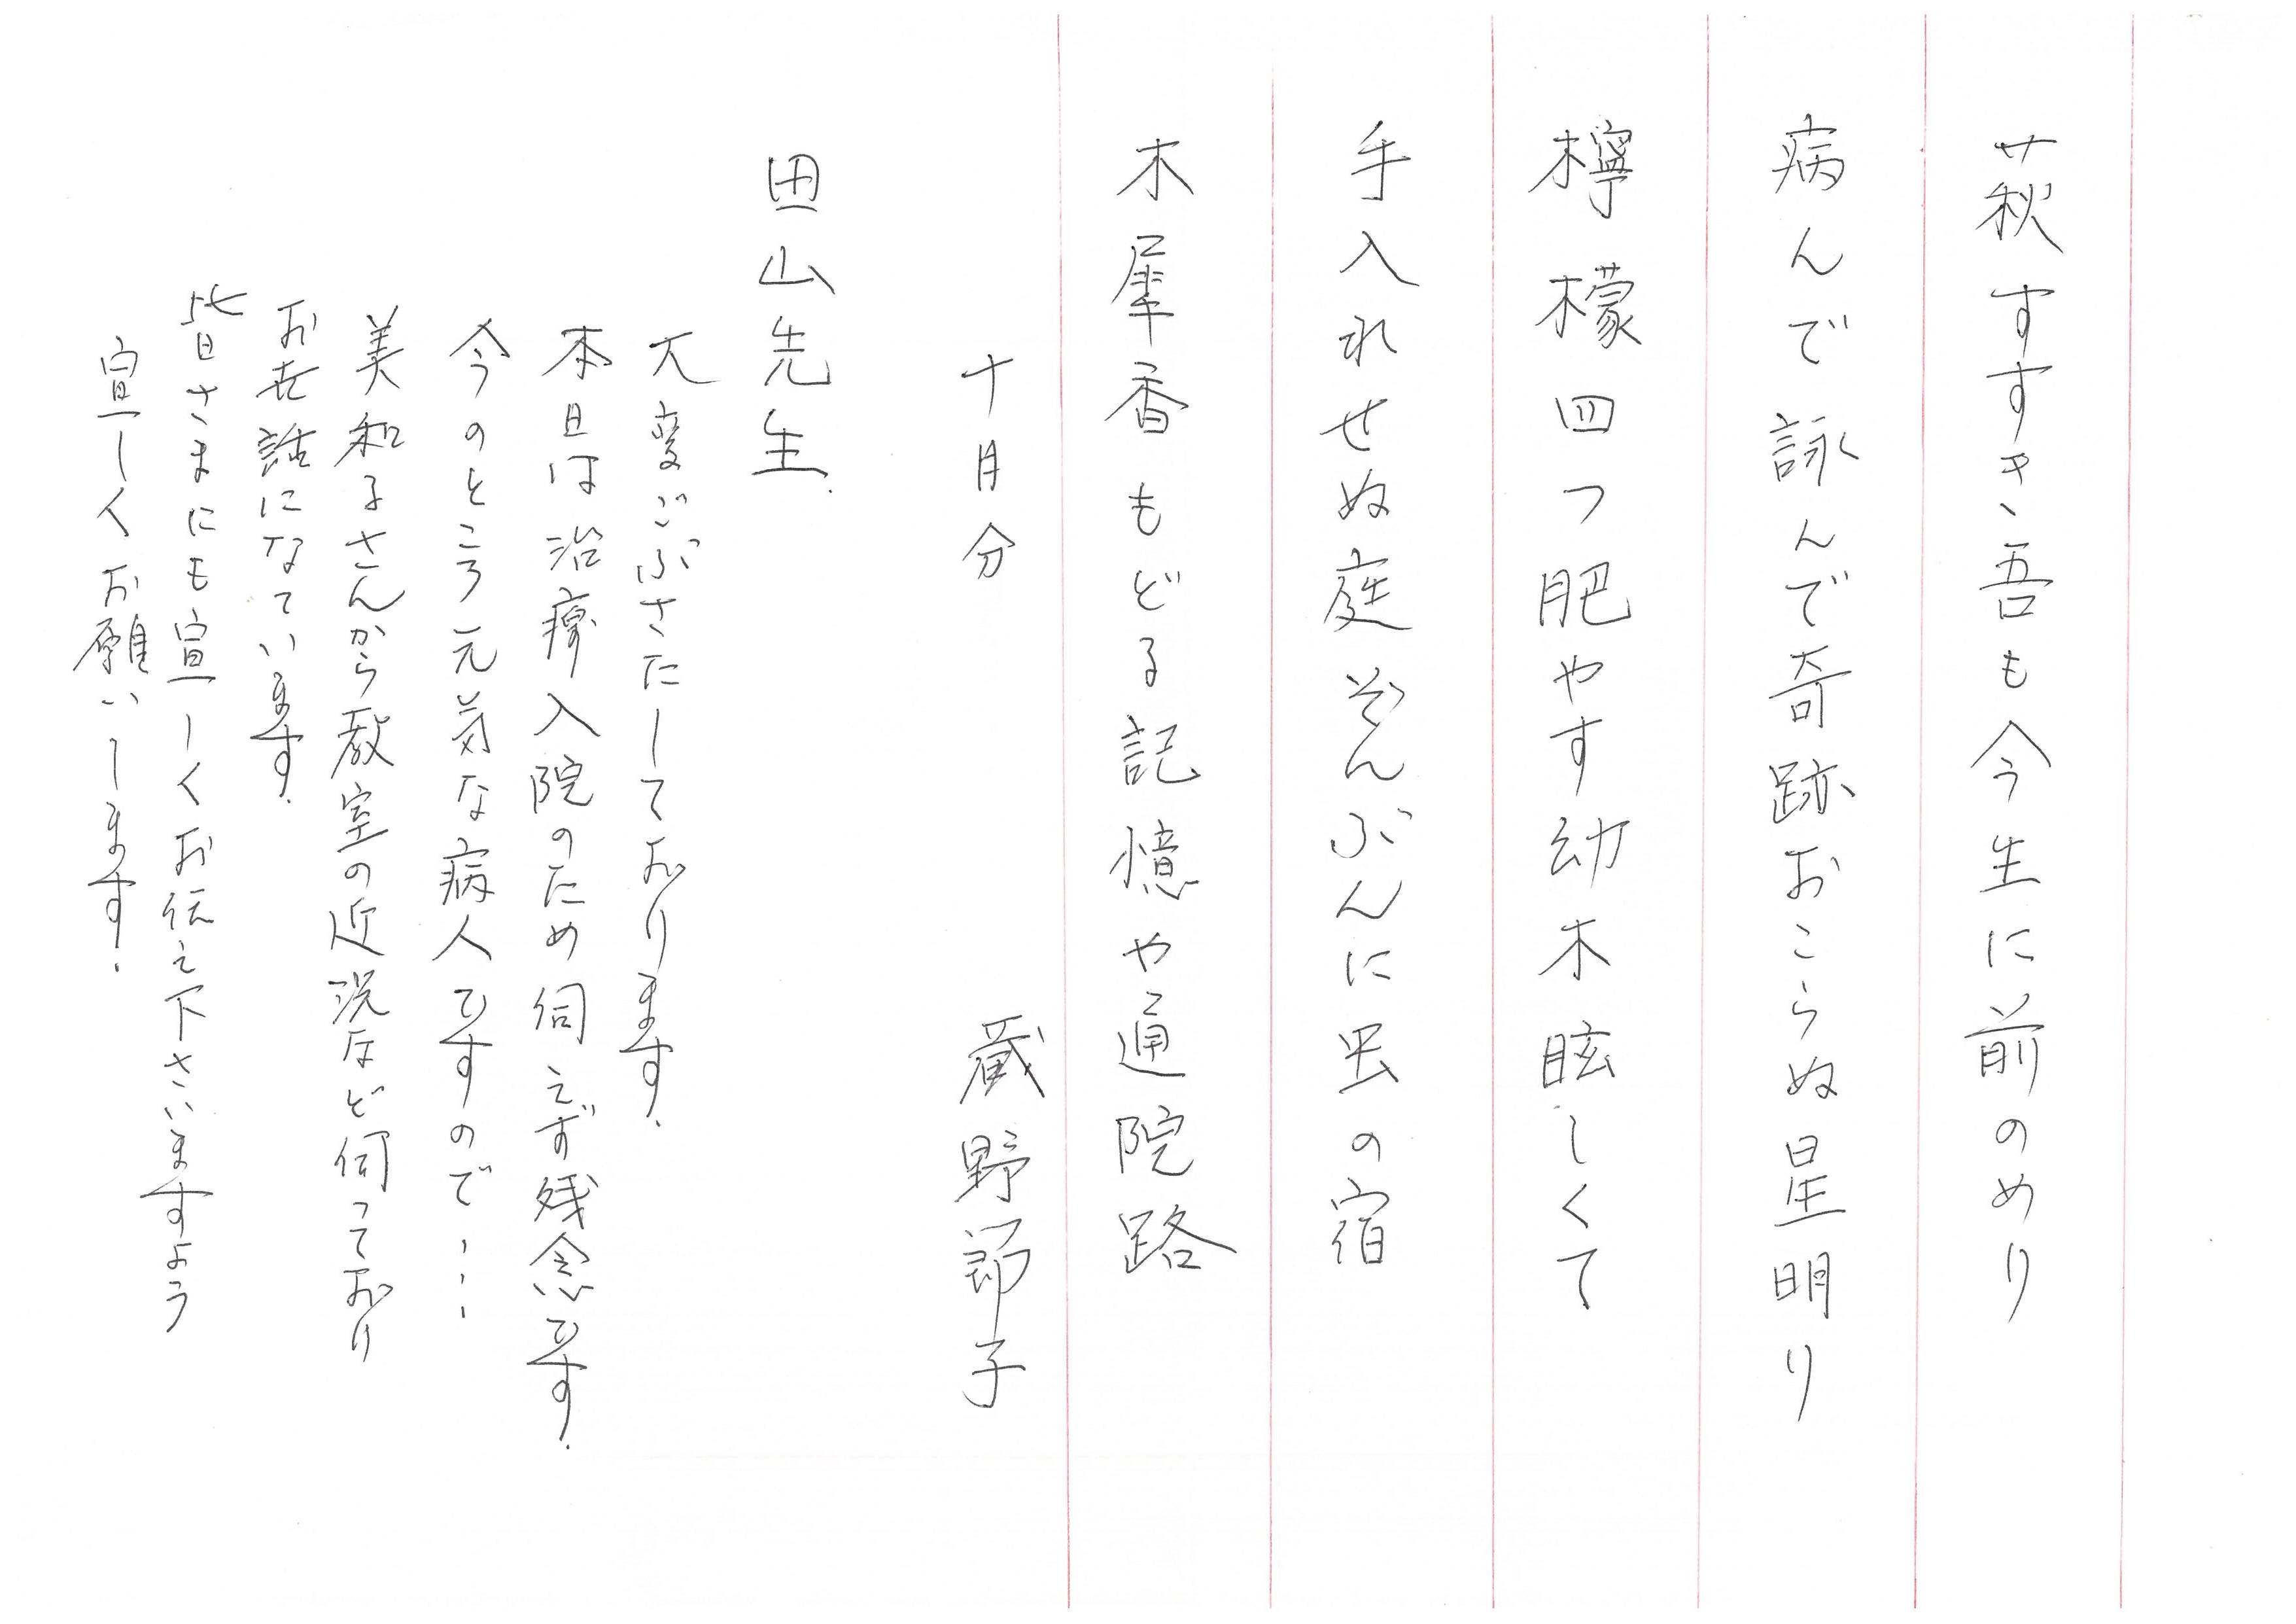 萩すすき吾も今生に前のめり
病んで詠んで奇跡おこらぬ星明り
檸檬四つ肥やす幼木眩しくて
手入れせぬ庭ぞんぶんに虫の宿
木犀香もどる記憶や通院路
十月分 蔵野節子
田山先生
大変ごぶさたしております.
本日は治療入院のため伺えず残念です.
今のところ元気な病人ですので・・・
美和子さんから教室の近況など伺っており
お世話になています.
皆さまにも宜しくお伝え下さいますよう
宜しくお願いします.